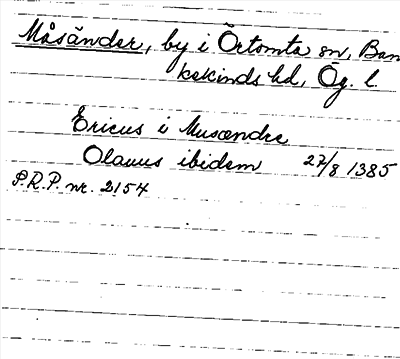 Måsänder, by i Örtomta sn, Ban
kekinds hd, Ög. l.
Ericus i Musændre
Olauus ibidem 27/8 1385
S.R.P. nr. 2154